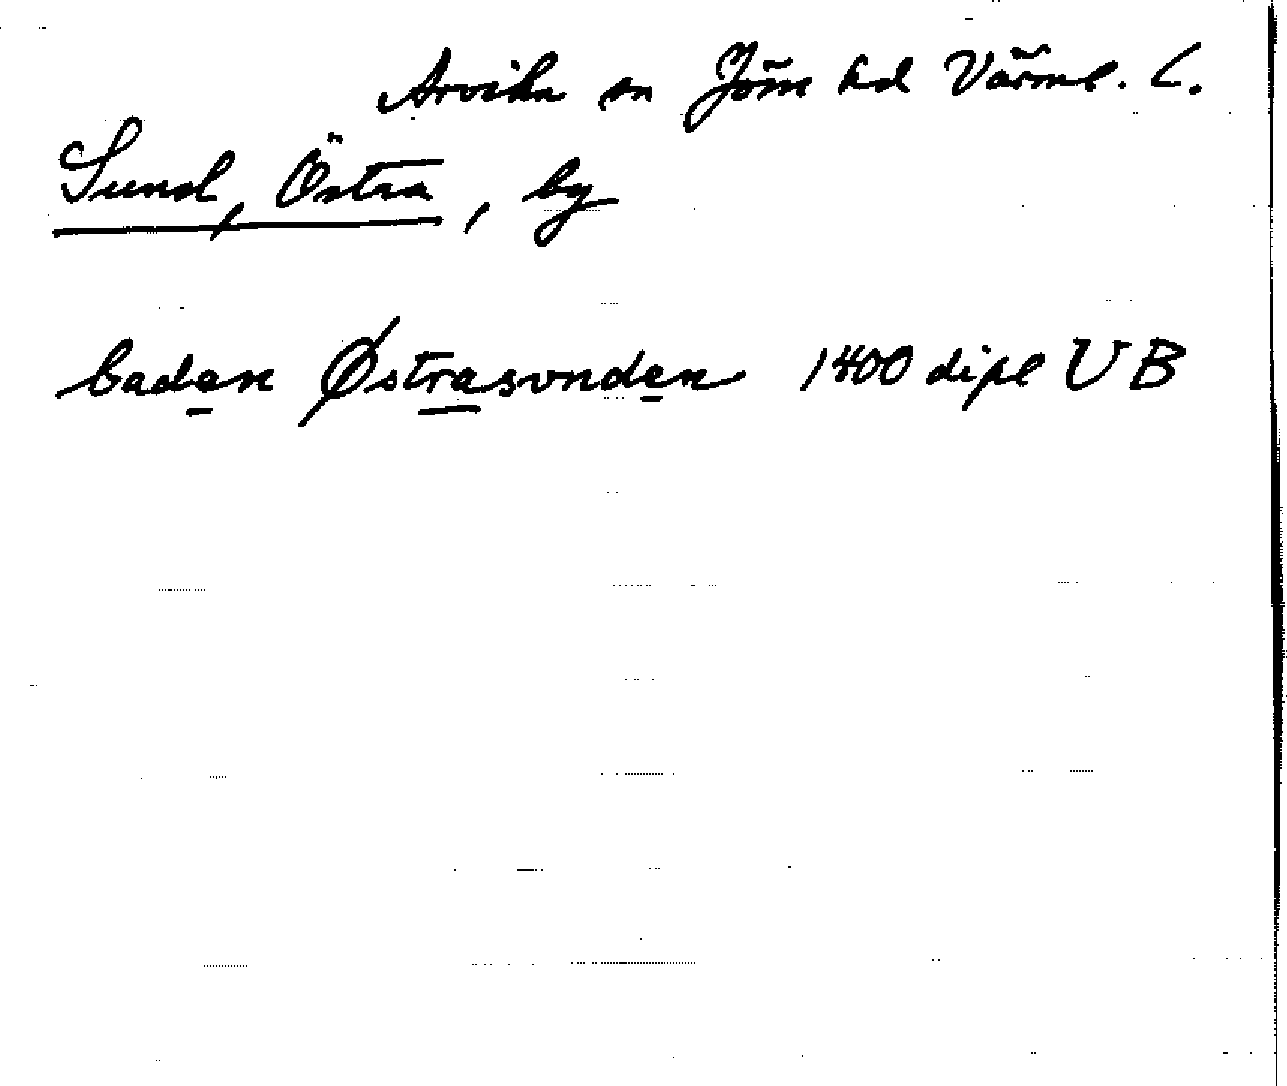 Arvika sn Jöss hd Värml. l.
Sund, Östra, by
badan Østrasvnden 1400 dipl UB